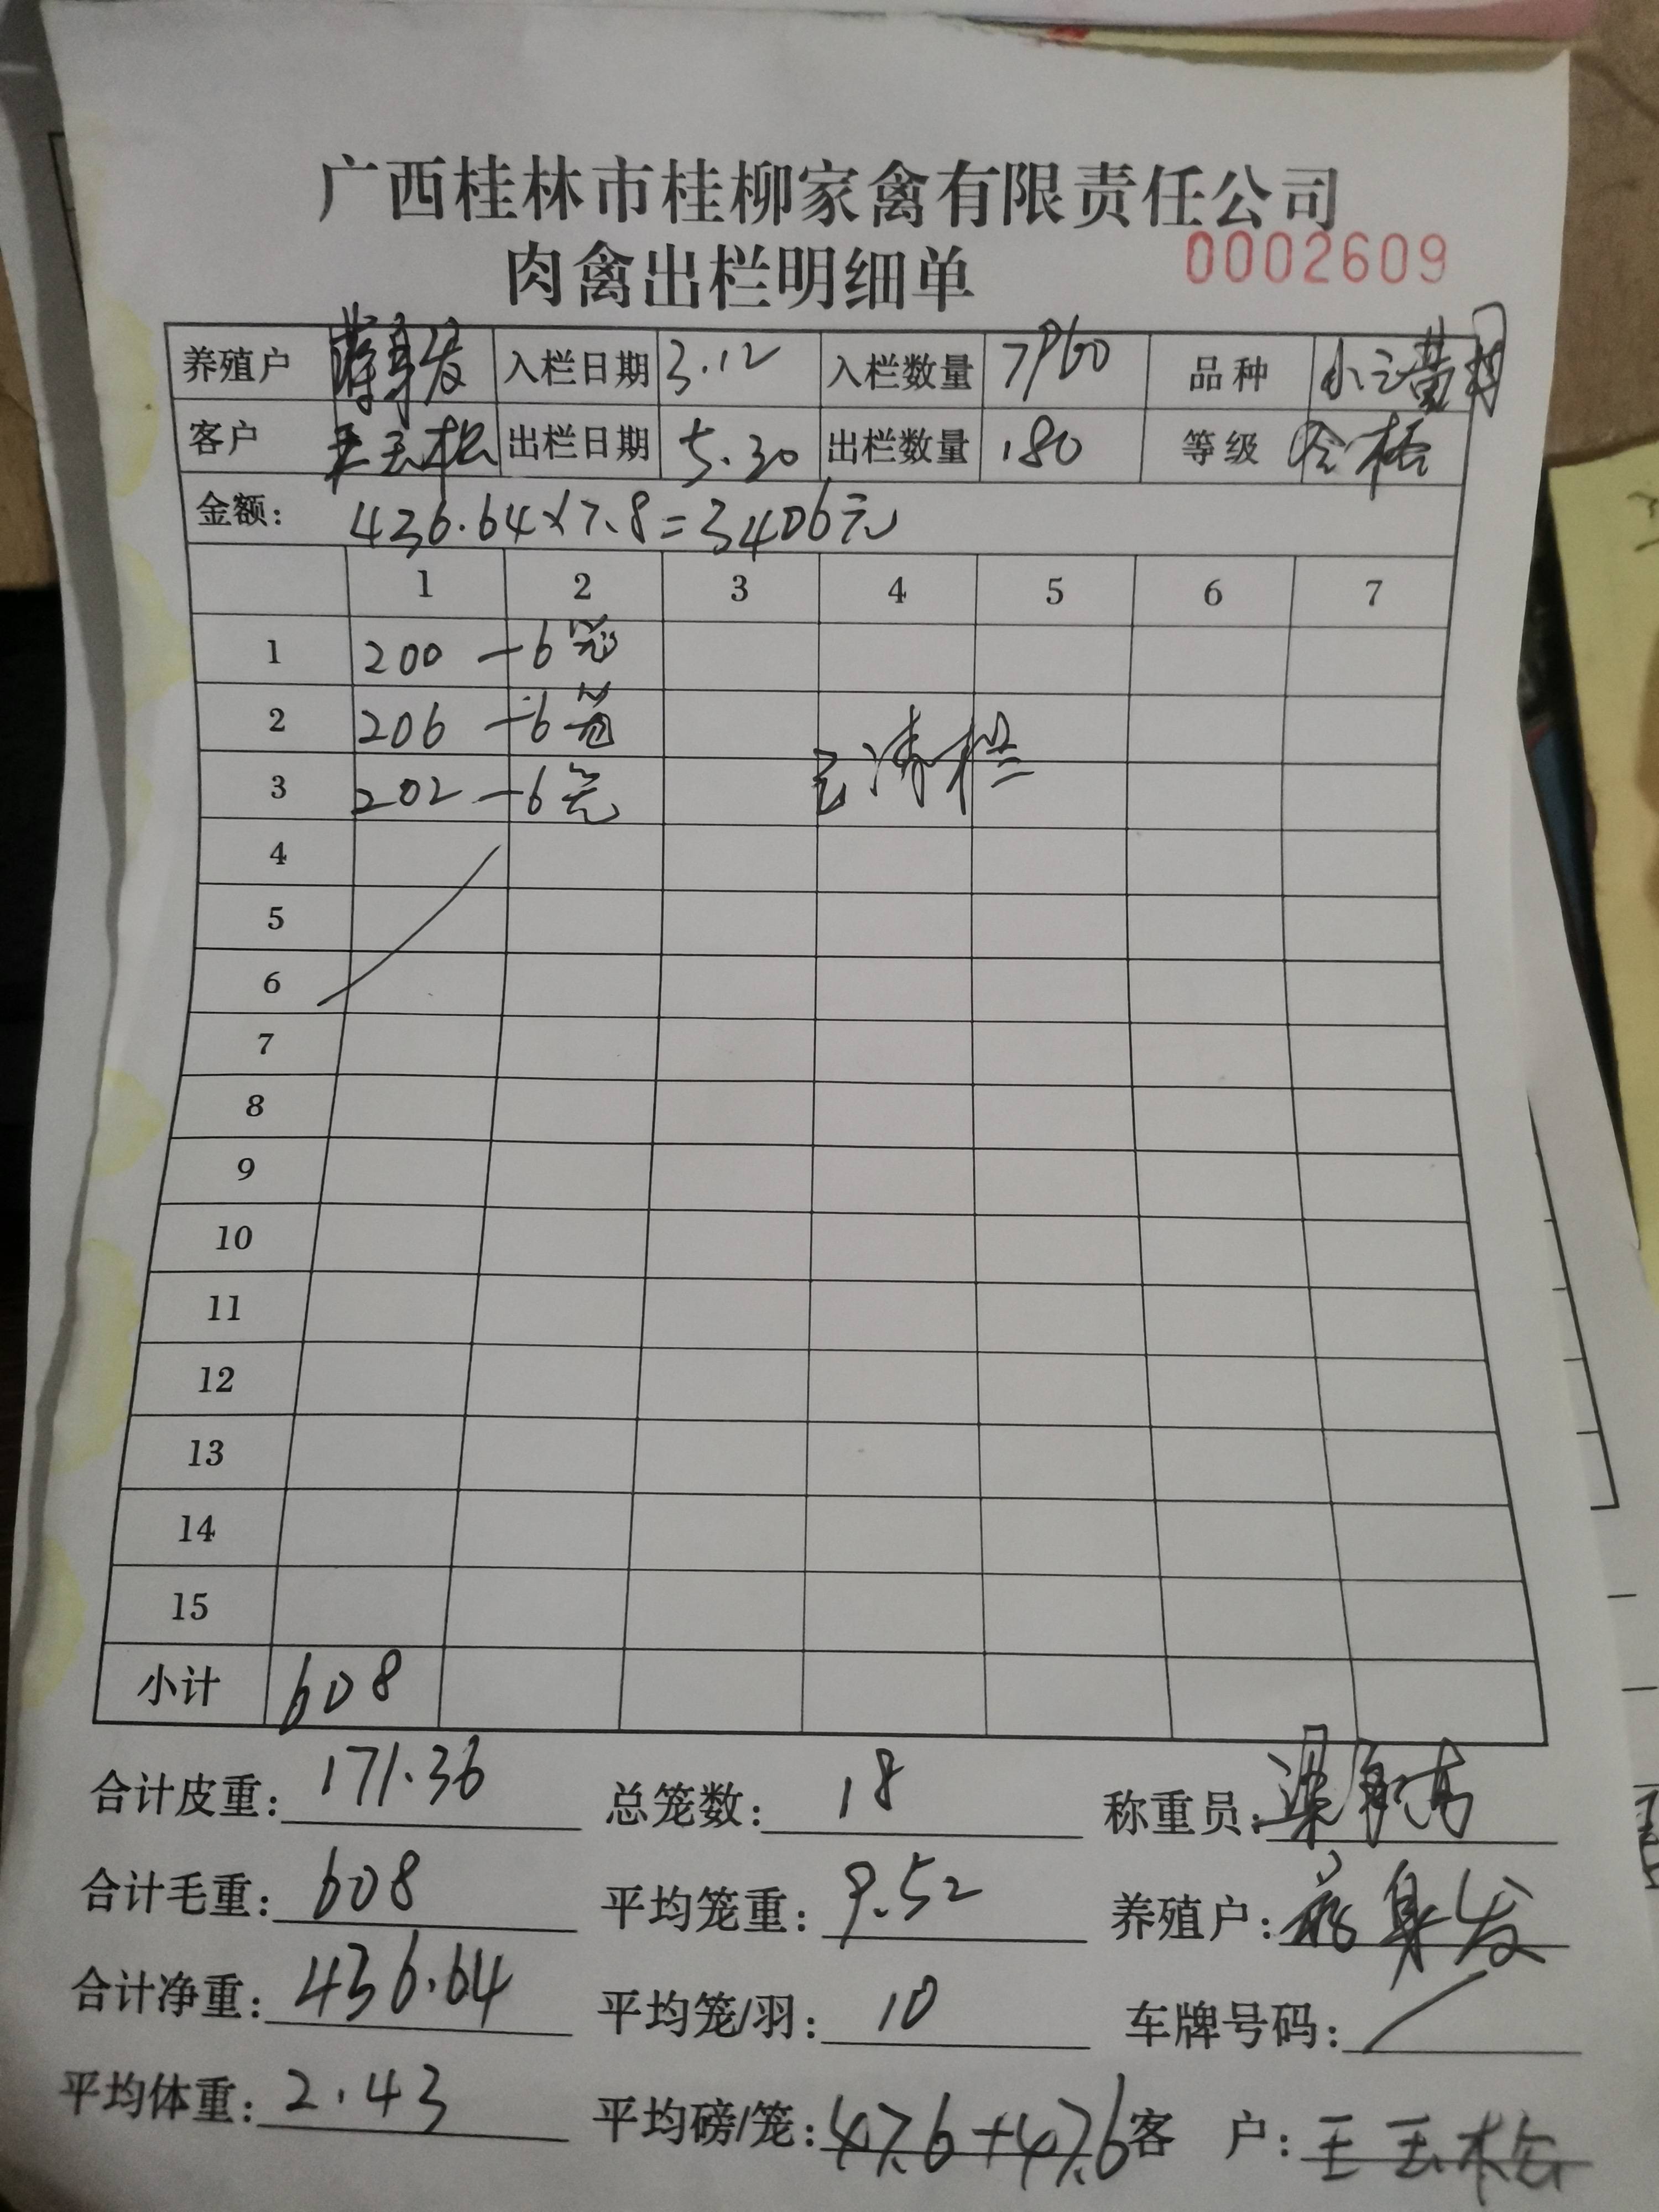 广西桂林市桂柳家禽有限责任公司
肉禽出栏明细单 0002609
养殖户 入栏日期 3.12 入栏数量 7960 品种
客户 王玉松 出栏日期 5.30 出栏数量 180 等级 合格
金额: 436.64×7.8=3406元
1 2 3 4 5 6 7
1 200 — 6笼
2 206 — 6笼 已清栏
3 202 — 6笼
4
5
6
7
8
9
10
11
12
13
14
15
小计 608
合计皮重: 171.36 总笼数: 18 称重员:
合计毛重: 608 平均笼重: 9.52 养殖户:
合计净重: 436.64 平均笼/羽: 10 车牌号码: /
平均体重: 2.43 平均磅/笼: 47.6+47.6 客 户: 王玉松